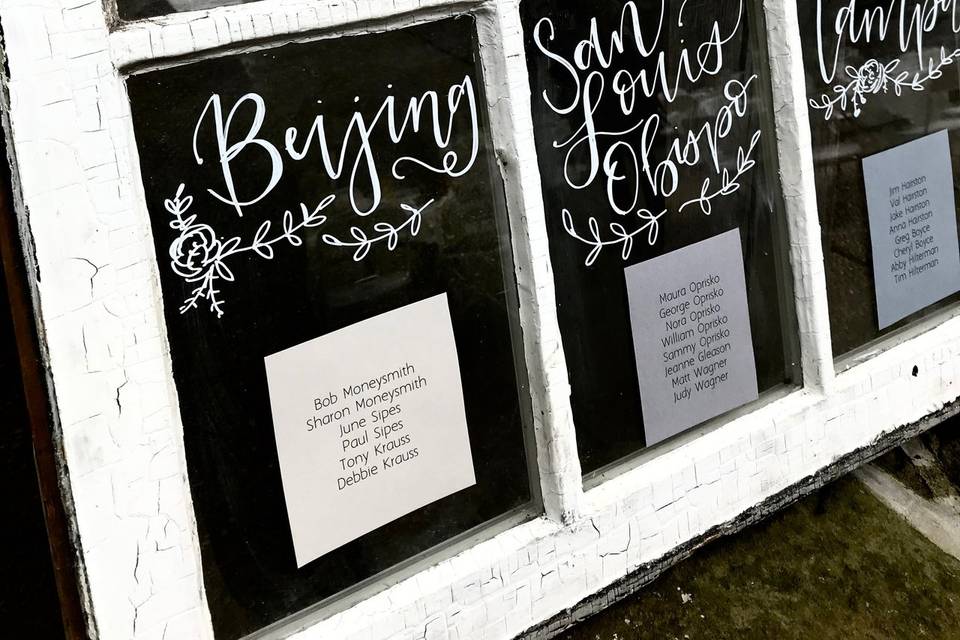 Beijing
Bob Moneysmith
Sharon Moneysmith
June Sipes
Paul Sipes
Tony Krauss
Debbie Krauss
San
Louis
Obispo
Maura Oprisko
George Oprisko
Nora Oprisko
William Oprisko
Sammy Oprisko
Jeanne Gleason
Matt Wagner
Judy Wagner
Tampa
Jim Hairston
Val Hairston
Jake Hairston
Anna Hairston
Greg Boyce
Cheryl Boyce
Abby Hilterman
Tim Hilterman